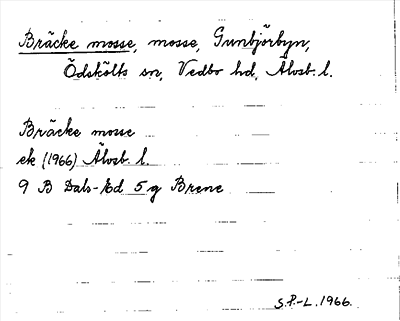 Bräcke mosse, mosse, Gunbjörbyn,
Ödskölts sn, Vedbo hd, Älvsb. l.
Bräcke mosse
ek (1966) Älvsb. l.
9 B Dals-Ed 5 g Brene
S.P.-L. 1966.